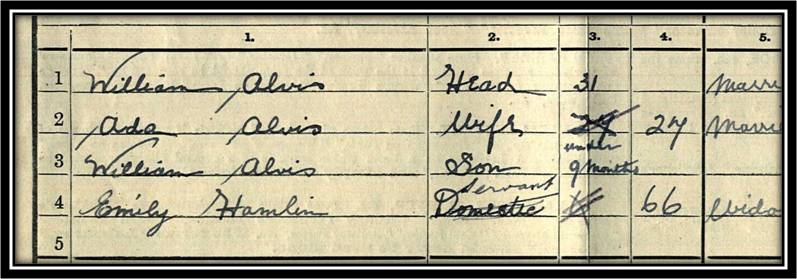 1. 2. 3. 4. 5.
1 William Alvis Head 31 Marri
2 Ada Alvis Wife 27 Marri
3 William Alvis Son under 9 months
4 Emily Hamlin Servant Domestic 66 Wido
5